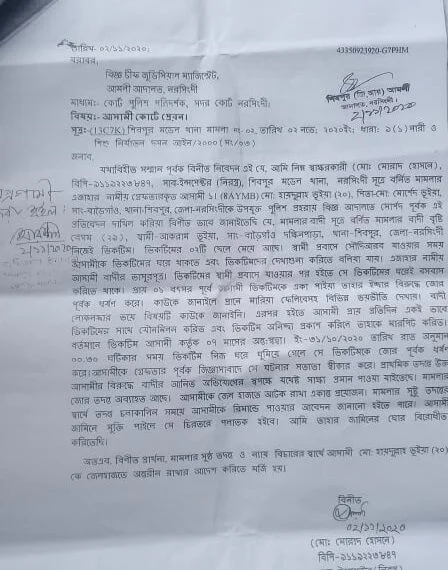 তারিখ- ০২/১১/২০২০;
43350923920-G7PHM
বরাবর,
বিজ্ঞ চীফ জুডিসিয়াল ম্যাজিস্ট্রেট,
আমলী আদালত, নরসিংদী।
মাধ্যমঃ কোর্ট পুলিশ পরিদর্শক, সদর কোর্ট নরসিংদী।
বিষয়ঃ- আসামী কোর্টে প্রেরন।
শিবপুর (জি,আর) আমলী
আদালত, নরসিংদী।
2/11/2020
সূত্রঃ-(13C7K) শিবপুর মডেল থানা মামলা নং-০২, তারিখ ০২ নভেঃ ২০২০ইং; ধারাঃ ৯(১) নারী ও
শিশু নির্যাতন দমন আইন/২০০০ (সং/০৩)
জনাব,
যথাবিহীত সম্মান পূর্বক বিনীত নিবেদন এই যে, আমি নিম্ন স্বাক্ষরকারী (মোঃ মোরাদ হোসেন),
বিপি-৯১১২২৩৮৪৭, সাব-ইন্সপেক্টর (নিরস্ত্র), শিবপুর মডেল থানা, নরসিংদী সূত্রে বর্নিত মামলার
এজাহার নামীয় গ্রেফতারকৃত আসামী ১। (8AYMB) মোঃ হায়দুল্লাহ ভূইয়া (২০), পিতা-মোঃ মোর্শেদ ভূইয়া,
সাং-বাড়ৈগাঁও, থানা-শিবপুর, জেলা-নরসিংদীকে উপযুক্ত পুলিশ প্রহরায় বিজ্ঞ আদালতে সোপর্দ পূর্বক এই
প্রতিবেদন দাখিল করিয়া বিনীত ভাবে জানাইতেছি যে, মামলার বাদী সূত্রে বর্নিত মামলার বাদী
বেগম (২৯), স্বামী-আকরাম ভূইয়া, সাং-বাড়ৈগাঁও দক্ষিনপাড়া, থানা-শিবপুর, জেলা-নরসিংদী
নিজেই ভিকটিম। ভিকটিমের ০২টি ছেলে মেয়ে আছে। স্বামী প্রবাসে সৌদিআরব যাওয়ার সময়
আসামীকে ভিকটিমের ঘরে থাকতে এবং ভিকটিমদের দেখাশুনা করিতে বলিয়া যায়। এজাহার নামীয়
আসামী বাদীর ভাসুরপুত্র। ভিকটিমের স্বামী প্রবাসে যাওয়ার পর হইতে সে ভিকটিমের ঘরেই বসবাস
করিতে থাকে। প্রায় ০১ বৎসর পূর্বে আসামী ভিকটিমকে একা পাইয়া তাহার ইচ্ছার বিরুদ্ধে জোর
পূর্বক ধর্ষন করে। কাউকে জানাইলে প্রানে মারিয়া ফেলিবেসহ বিভিন্ন ভয়ভীতি দেখায়। বাদী
লোকলজ্জার ভয়ে বিষয়টি কাউকে জানাইনি। এরপর হইতে আসামী প্রায় প্রতিদিন একই ভাবে
ভিকটিমের সাথে যৌনমিলন করিত এবং ভিকটিম অনিচ্ছা প্রকাশ করিলে তাহাকে মারপিট করিত।
বর্তমানে ভিকটিম আসামী কর্তৃক ০৭ মাসের অন্তঃসত্ত্বা। ইং-৩১/১০/২০২০ তারিখ রাত অনুমান
০০.৩০ ঘটিকার সময় ভিকটিম নিজ ঘরে ঘুমিয়ে গেলে সে ভিকটিমকে জোর পূর্বক ধর্ষন
করে। আসামীকে গ্রেফতার পূর্বক জিজ্ঞাসাবাদে সে ঘটনার সত্যতা স্বীকার করে। প্রাথমিক তদন্তে উক্ত
আসামীর বিরুদ্ধে বাদীর আনিত অভিযোগের স্বপক্ষে যথেষ্ট সাক্ষ্য প্রমান পাওয়া যাইতেছে। মামলার
জোর তদন্ত অব্যাহত আছে। আসামীকে জেল হাজতে আটক রাখা একান্ত প্রয়োজন। মামলার সুষ্ঠু তদন্তের
স্বার্থে তদন্ত চলাকালিন সময়ে আসামীকে রিমান্ডে পাওয়ার আবেদন জানানো হইতে পারে। আসামী
জামিনে মুক্তি পাইলে সে চিরতরে পলাতক হইবে। আমি তাহার জামিনের ঘোর বিরোধীতা
করিতেছি।
অতএব, বিনীত প্রার্থনা, মামলার সুষ্ঠু তদন্ত ও ন্যায় বিচারের স্বার্থে আসামী মোঃ হায়দুল্লাহ ভূইয়া (২০)
কে জেলহাজতে অন্তরীন রাখার আদেশ করিতে মর্জি হয়।
2/11/2020
বিনীত
02/11/2020
(মোঃ মোরাদ হোসেন)
বিপি-৯১১২২৩৮৪৭